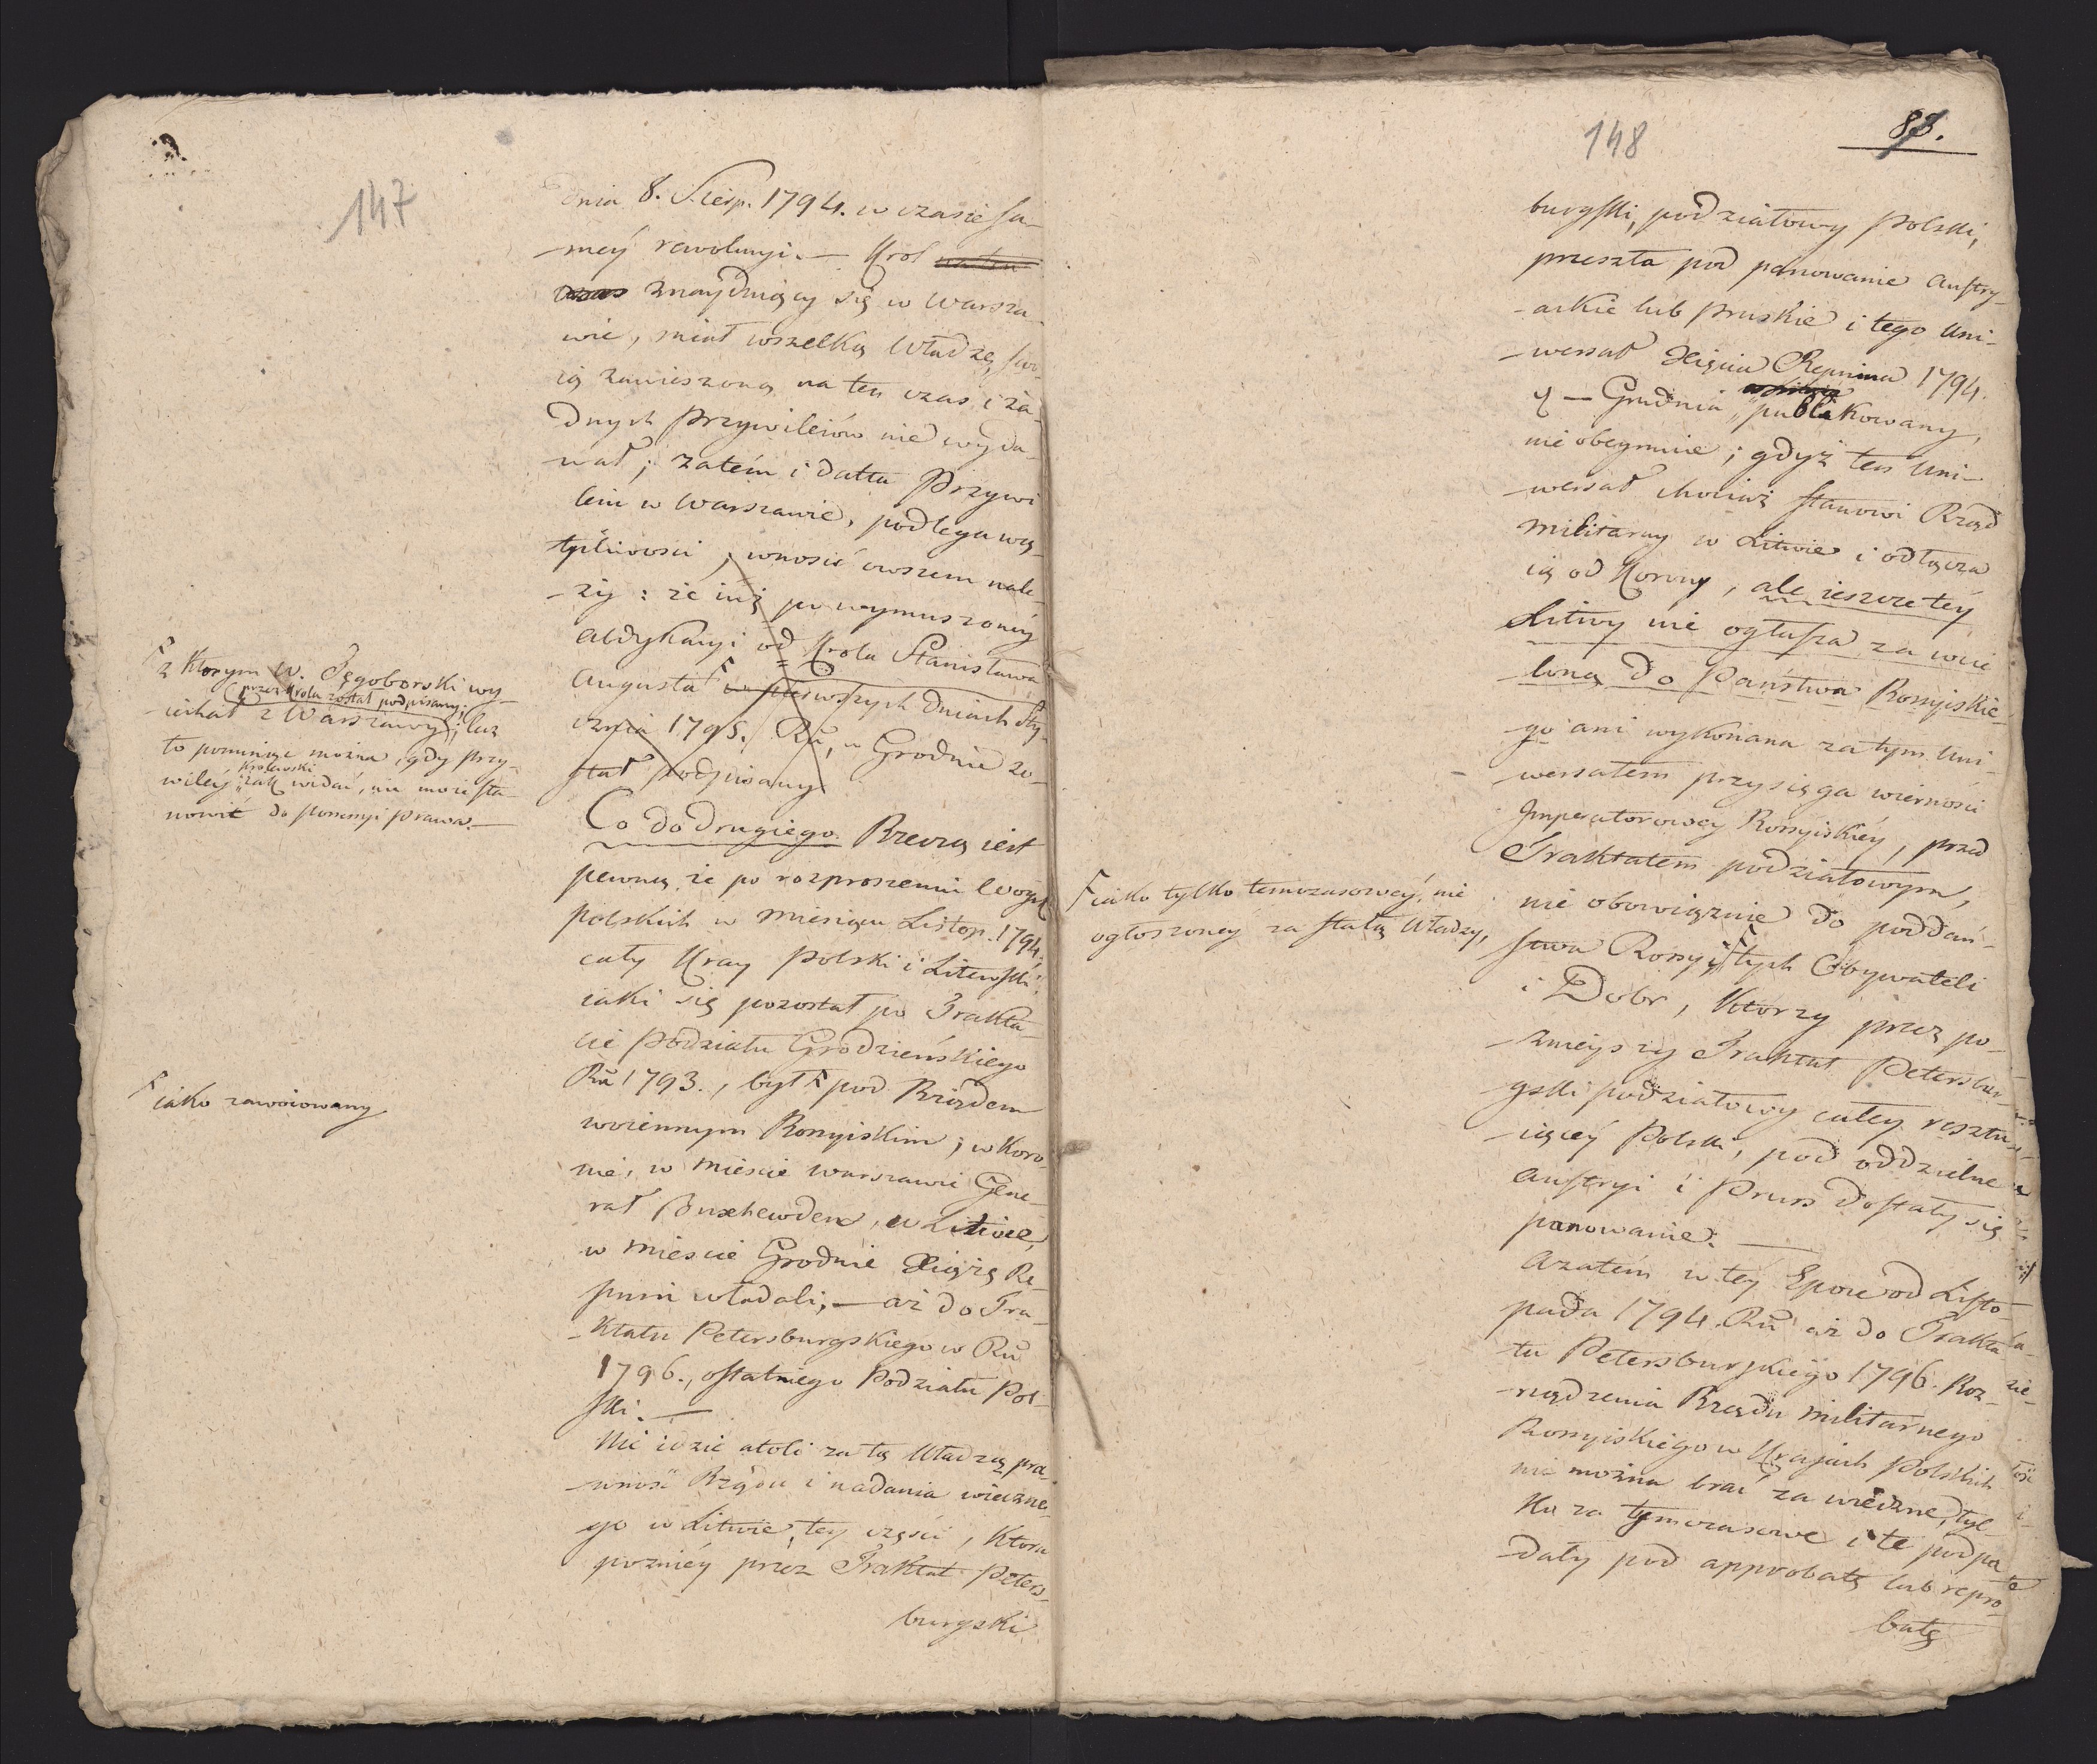 147
dnia 8. Sierp. 1794. w czasie sa-
-meÿ rewolucyi. — Krol na ten
czas znayduiący się w Warsza-
wie, miał wszelką Władzę swo-
ią zawieszoną na ten czas i ża-
dnych Przywileiów nie wyda-
wał; zatém i datta Przywi
leiu w Warszawie, podlega wą-
tpliwosci, wnosić owszem nale-
-ży: że iuż po wymuszonéy
abdykacyi od Krola Stanisława
Augusta F w pierwszych dniach Sty-
cznia 1795. Rũ, w Grodnie zo-
stał podpisany
F z ktorym W. Tęgoborski wy-
(przez Krola został podpisany;
-iechał z Warszawy); lecz
to pominąc można, gdy przy-
Krolewski
wiley, iak widać, nie może sta-
nowić do possessyi prawa. —
Co do drugiego. Rzeczą iest
pewną, że po rozproszeniu Woysk
polskich w miesiącu Listop. 1794.
cały Kray Polski i Litewski
iaki się pozostał po Trakta-
cie podziału Grodzieńskiego
Rũ 1793., był F pod Rządem
woiennym Rossyiskim; w Koro-
nie, w mieście Warszawie Gene-
rał Buxhewden, w Litwie,
w mieście Grodnie Xiążę Re-
pnin władali, — aż do Tra-
-ktatu Petersburgskiego w Rũ
1796., ostatniego Podziału Pol-
ski. —
F iako zawoiowany
Nie idzie atoli za tą Władzą pra-
wność Rządu i nadania wieczne-
go w Litwie, tey części, ktora
pozniéy przez Traktat Peters-
burgski
148
83.
burgski, podziałowy Polski,
przeszła pod panowanie Austry-
-ackie lub Pruskie i tego Uni-
-wersał Xięcia Repnina 1794.
— Grudnia publikowany,
nie obeymuie; gdyż ten Uni-
-wersał chociaż stanowi Rząd
militarny w Litwie i odłącza
ią od Korony, ale ieszcze téy
Litwy nie ogłasza za wcie
loną do Państwa Rossyiskie-
go ani wykonana za tym Uni-
wersałem przysięga wierności
Imperatorowey Rossyiskiéy, przed
Traktatem podziałowym,
nie obowiązuie do poddań-
stwa Rossyi F tych Obywateli
i Dobr, ktorzy przez po-
znieyszy Traktat Petersbur-
gski podziałowy całey resztu-
-iącéy Polski, pod oddzielne
Austryi i Pruss dostały się
panowanie. —
F iako tylko temczasowéy, nie
ogłoszoney za stałą Władzy,
Azatém w téy Epoce od Listo-
pada 1794. Rũ aż do Trakta-
tu Petersburgskiego 1796. Roz-
rządzenia Rządu militarnego
Rossyiskiego w Krajach Polskich
nie można brać za wieczne, tyl-
ko za tymczasowe i te podpa
dały pod approbatę lub repro-
batę